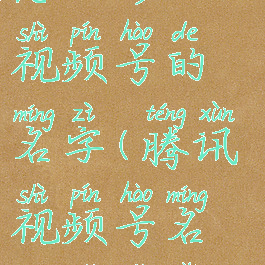 shì pín hào de
视频号的
míng zì téng xùn
名字(腾讯
shì pín hào míng
视频号名